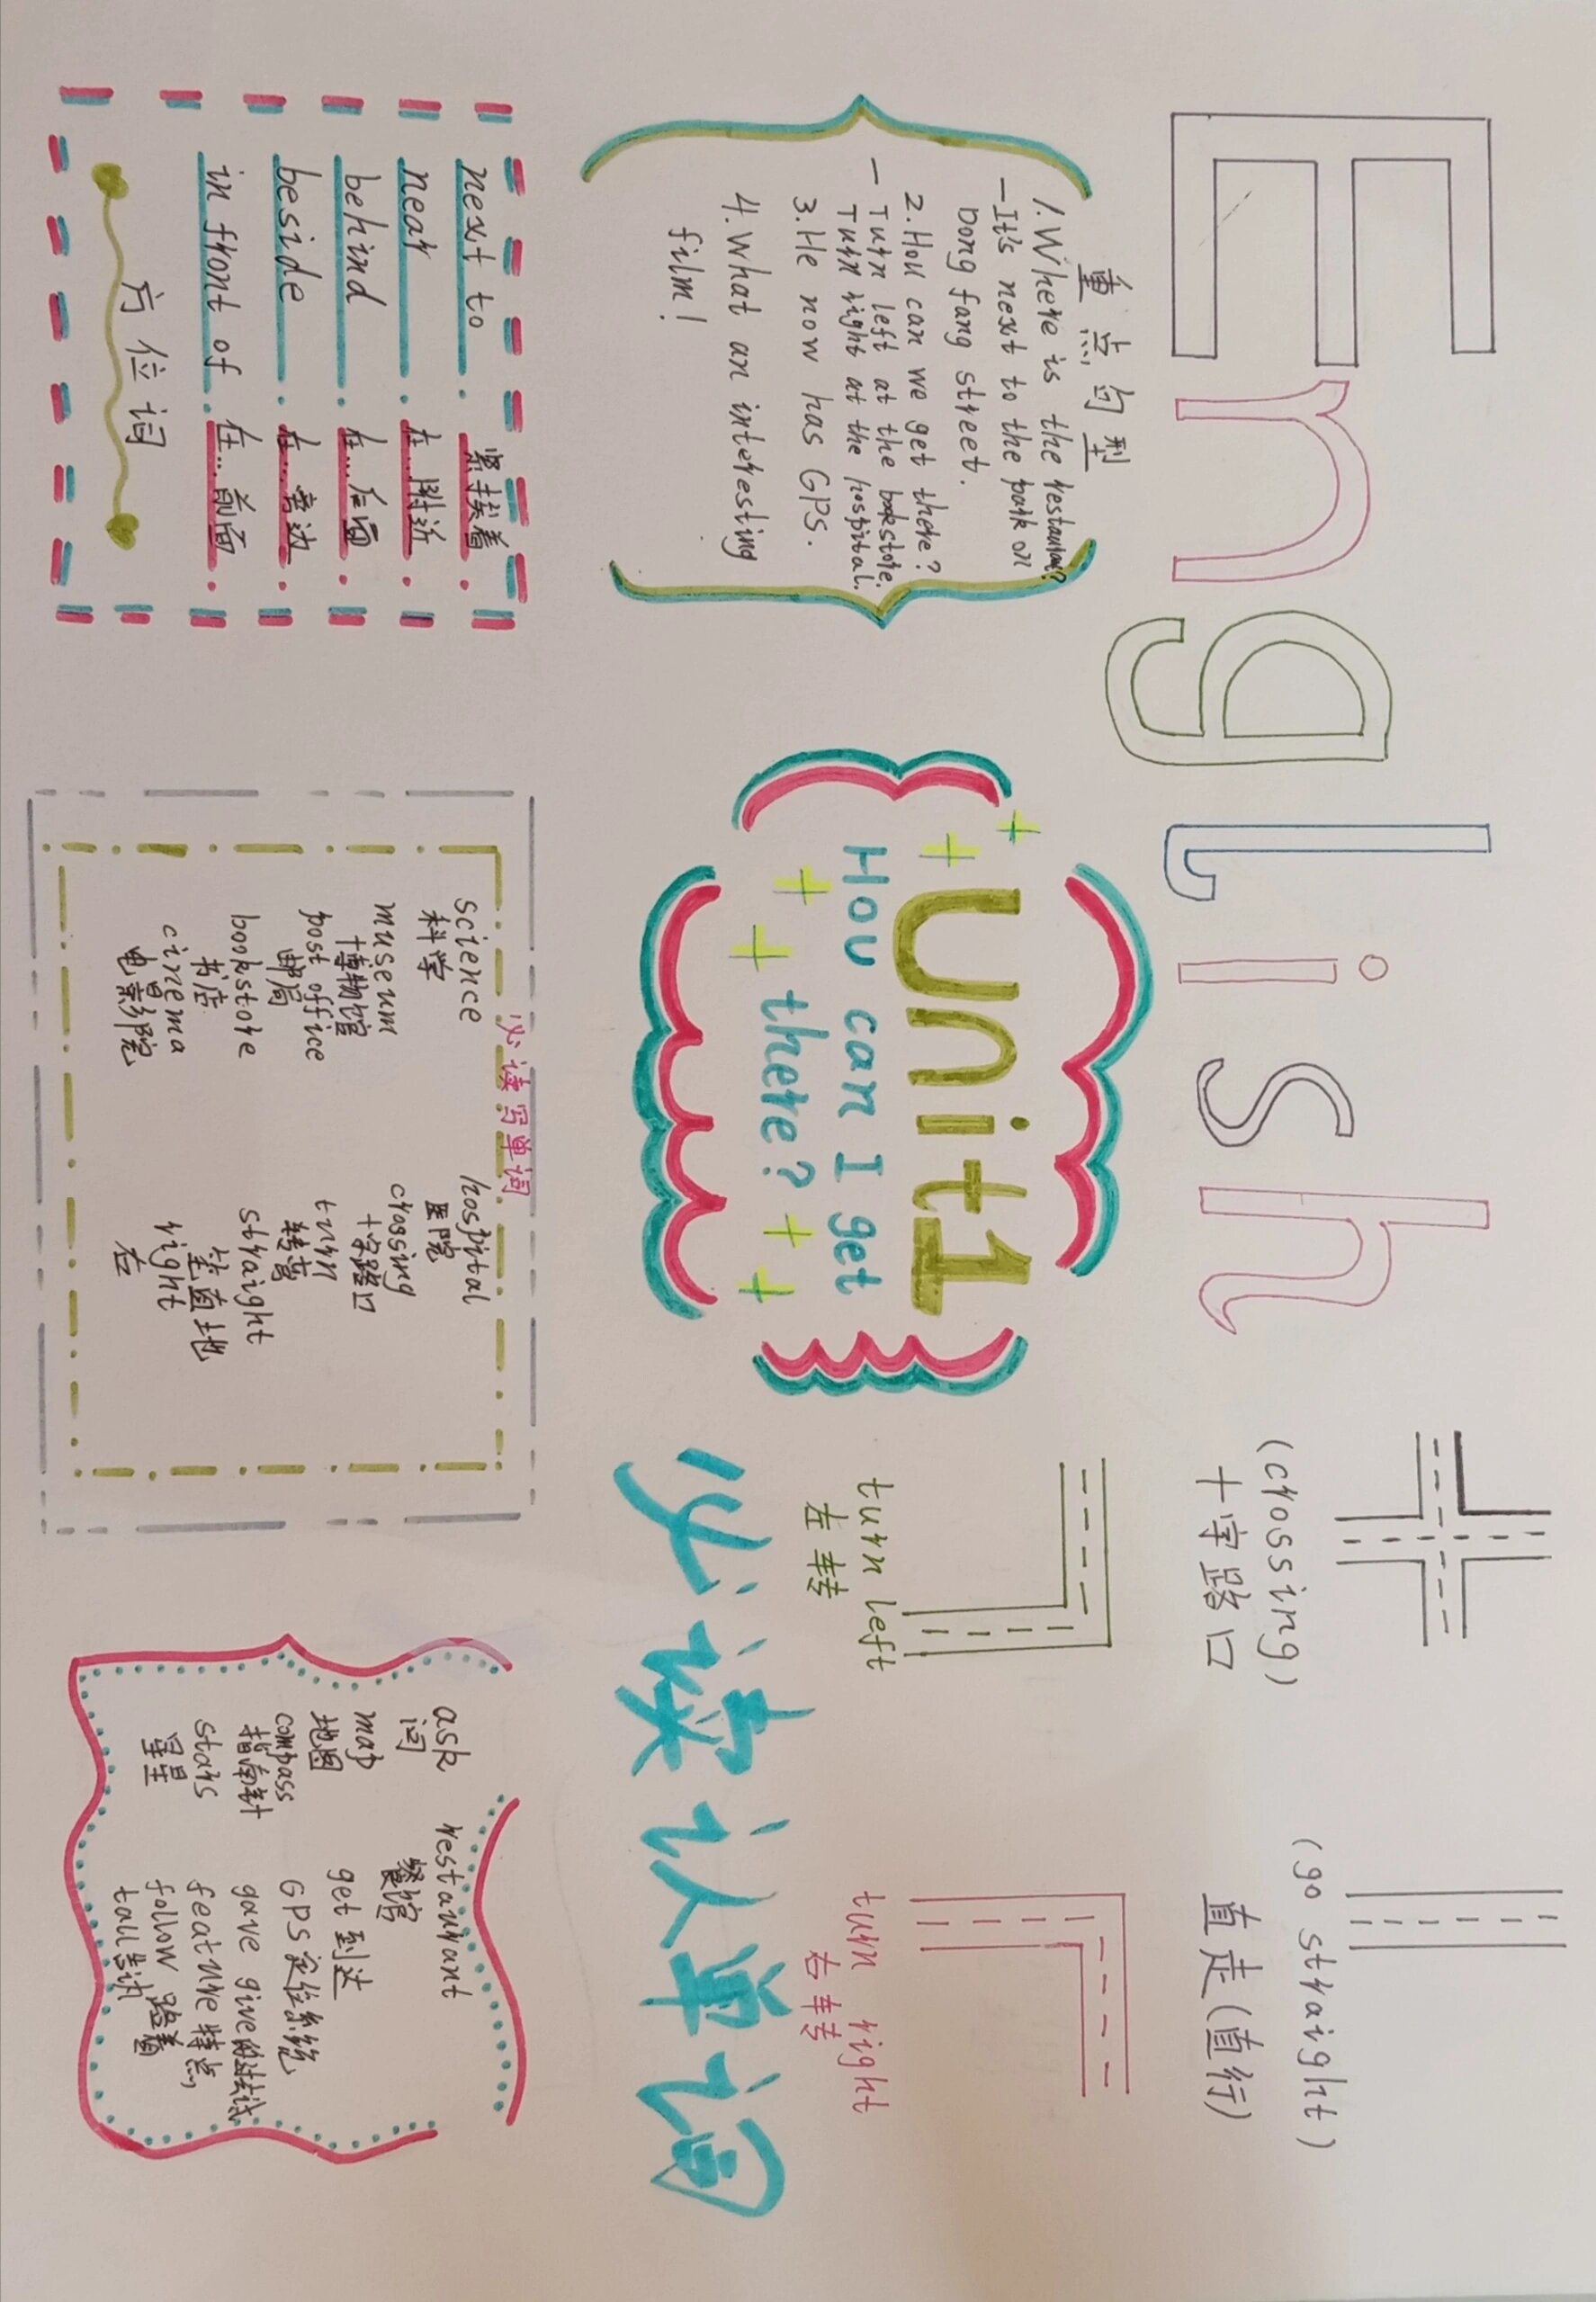 English
(crossing)
十字路口
(go straight)
直走(直行)
重点句型
1.Where is the restaurant?
—It's next to the park on
Dong fang street.
2.How can we get there?
— Turn left at the bookstore.
Turn right at the hospital.
3.He now has GPS.
4.What an interesting
film!
Unit1
How can I get
there?
turn left
左转
turn right
右转
必读认单词
next to 紧挨着
near 在...附近
behind 在...后面
beside 在...旁边
in front of 在...前面
方位词
必读写单词
science
科学
museum
博物馆
post office
邮局
bookstore
书店
cinema
电影院
hospital
医院
crossing
十字路口
turn
转弯
straight
笔直地
right
右
ask
问
map
地图
compass
指南针
stars
星星
restaurant
餐馆
get 到达
GPS 定位系统
gave give的过去式
feature 特点
follow 跟着
tall 告诉